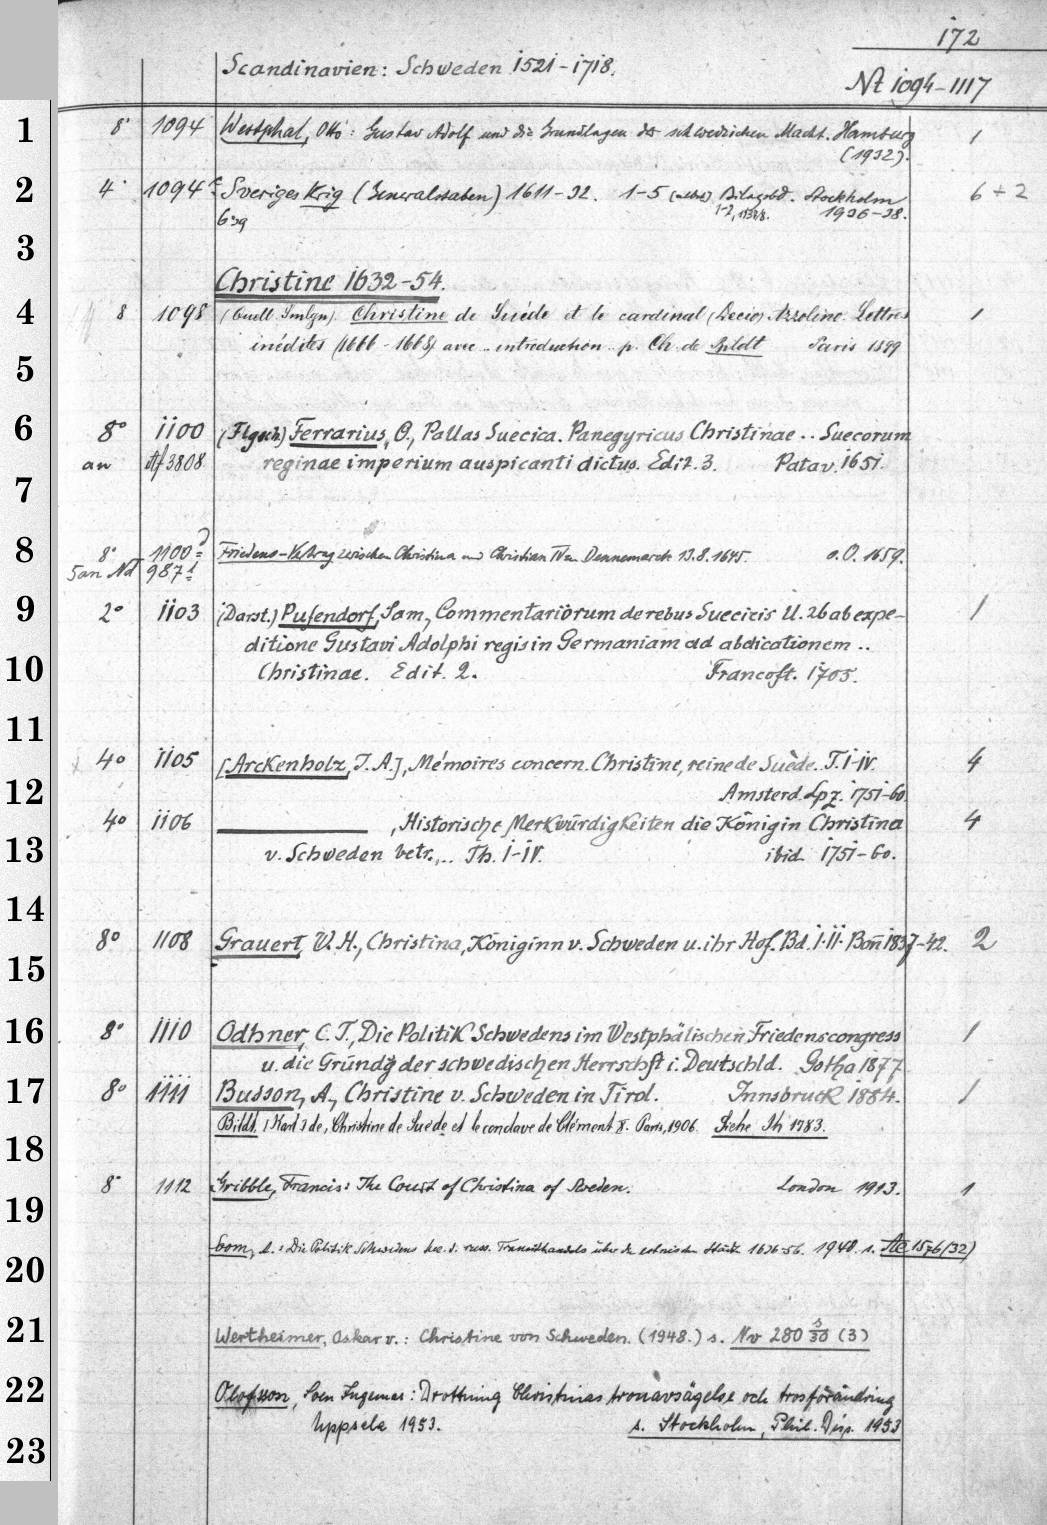 172
Scandinavien: Schweden 1521-1718.
Nt 1094-1117
1 8° 1094 Westphal, Otto: Gustav Adolf und die Grundlagen der schwedischen Macht. Hamburg 1
(1932).
2 4° 1094 Sveriges Krig (Generalstaben) 1611-32. 1-5 Bilagsbd. Stockholm 6 + 2
1-2, 1936-38.
3
Christine 1632-54.
4 8 1098 (Quell. Smlgn). Christine de Suède et le cardinal (Decio) Azzolino. Lettres 1
inédites (1666-1668) avec .. introduction .. p. Ch. de Bildt Paris 1899
5
6 8° 1100 (Flgsch) Ferrarius, O., Pallas Suecica. Panegyricus Christinae .. Suecorum
an 3808 reginae imperium auspicanti dictus. Edit. 3. Patav. 1651.
7
8 8° 1100 Friedens-Vertrag zwischen Christina und Christian IV von Dennemarck 13.8.1645. o.O. 1659.
5 an Nd 987
9 2° 1103 (Darst.) Pufendorf, Sam., Commentariorum de rebus Suecicis ll. 26 ab expe- 1
ditione Gustavi Adolphi regis in Germaniam ad abdicationem ..
10 Christinae. Edit. 2. Francoft. 1705.
11
4° 1105 [Arckenholz, J. A.], Mémoires concern. Christine, reine de Suède. T. I-IV. 4
12 Amsterd. Lpz. 1751-60.
4° 1106 , Historische Merkwürdigkeiten die Königin Christina 4
13 v. Schweden betr., .. Th. I-IV. ibid. 1751-60.
14
8° 1108 Grauert, W. H., Christina, Königinn v. Schweden u. ihr Hof. Bd. I-II. Bonn 1837-42. 2
15
16 8° 1110 Odhner, C. T., Die Politik Schwedens im Westphälischen Friedenscongress 1
u. die Gründg der schwedischen Herrschft i. Deutschld. Gotha 1877.
17 8° 1111 Busson, A., Christine v. Schweden in Tirol. Innsbruck 1884. 1
Bildt, [Karl] de, Christine de Suède et le conclave de Clément X. Paris, 1906 Siehe Ih 1783.
18
8° 1112 Gribble, Francis: The Court of Christina of Sweden. London 1913. 1
19
: Die Politik Schwedens russ. Transithandels über 1636-56. 1940. s. 1576/32)
20
21 Wertheimer, Oskar v.: Christine von Schweden. (1948.) s. Nv 280 s/30 (3)
22 Olofsson, Sven Ingemar: Drottning Christinas tronavsägelse och trosförändring
Uppsala 1953. s. Stockholm, Phil. Disp. 1953
23